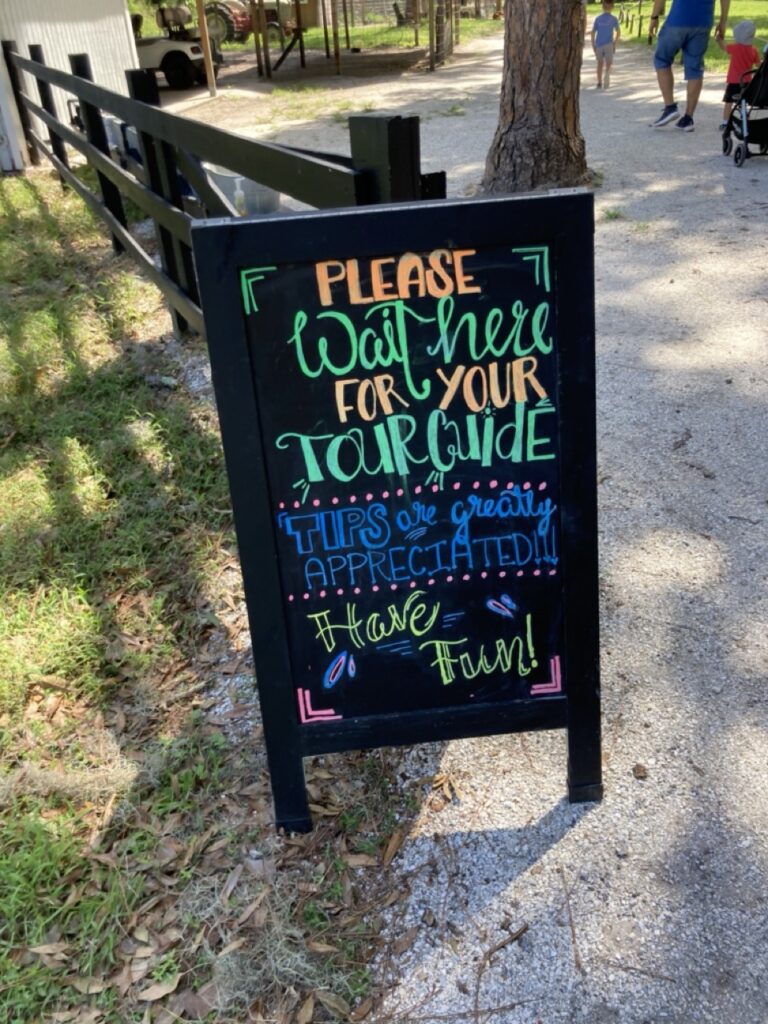 PLEASE
Wait here
FOR YOUR
TOUR GUIDE
TIPS are greatly
APPRECIATED!!!
Have
Fun!